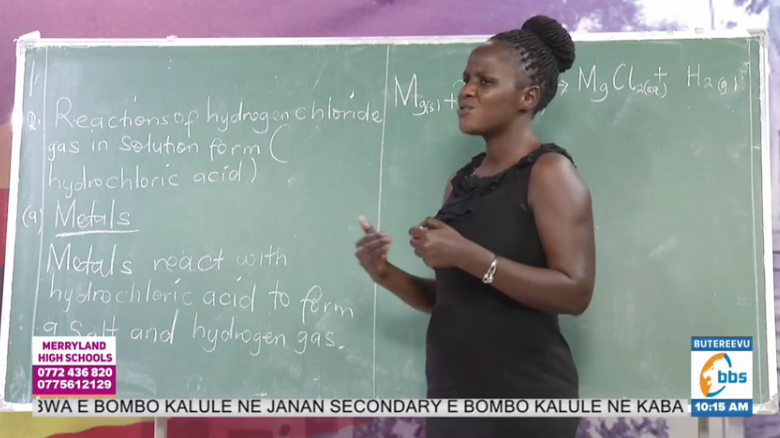 2. Reactions of hydrogen chloride
gas in solution form (
hydrochloric acid)
(a) Metals
Metals react with
hydrochloric acid to form
a salt and hydrogen gas.
Mg(s) +
→ MgCl2(aq) + H2(g)
MERRYLAND
HIGH SCHOOLS
0772 436 820
0775612129
BUTEREEVU
bbs
10:15 AM
BWA E BOMBO KALULE NE JANAN SECONDARY E BOMBO KALULE NE KABA